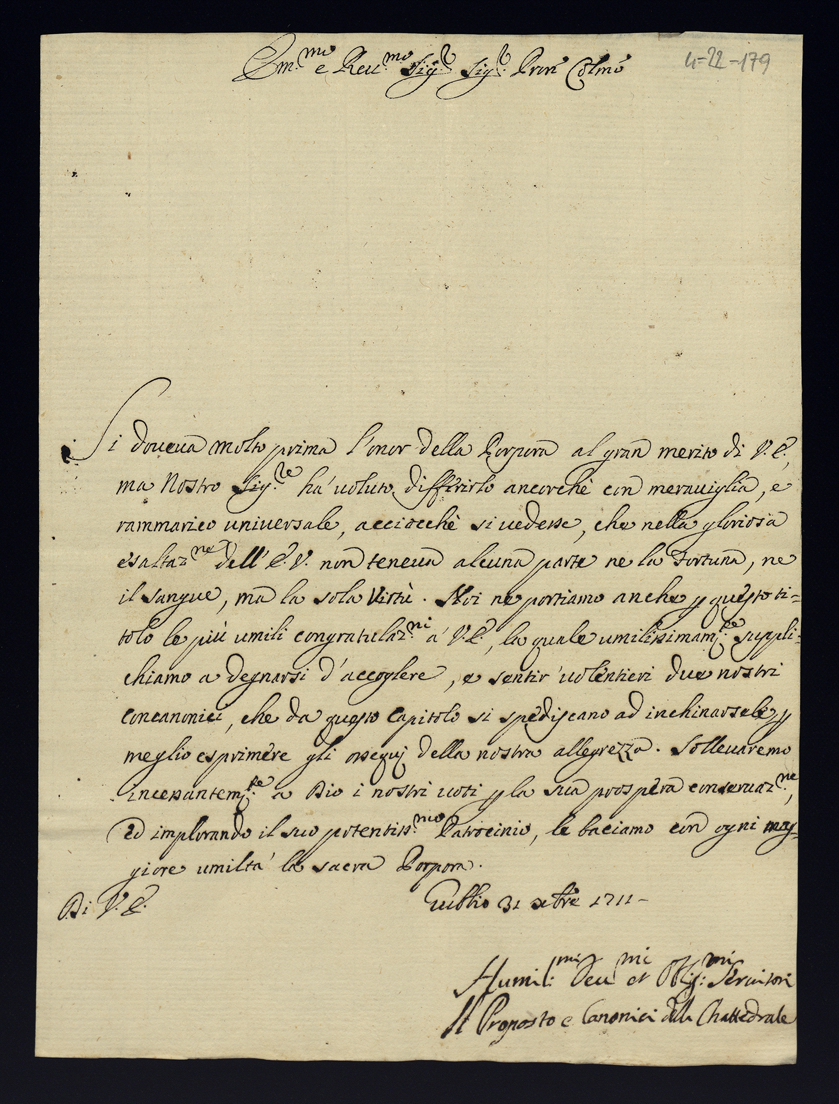 Em.mo e Reu.mo Sig.r Sig.r Pron Colmo
4-22-179
Si doueua molto prima l'onor della Porpora al gran merito di V.E.,
ma Nostro Sig.re ha' uoluto differirlo ancorchè con merauiglia, e
rammarico uniuersale, acciocchè si uedesse, che nella gloriosa
esaltaz.ne dell' E.V. non teneua alcuna parte ne la Fortuna, ne
il sangue, ma la sola Virtù. Noi ne portiamo anche p questo ti=
tolo le più umili congratulaz.ni a' V.E., la quale umilissimam.te suppli=
chiamo a degnarsi d'accoglere, e sentir uolentieri due nostri
concanonici, che da questo Capitolo si spediscano ad inchinarsele, p
meglio esprimere gli ossequj della nostra allegrezza. Solleuaremo
incessantem.te a Dio i nostri uoti p la sua prospera conseruaz.ne,
ed implorando il suo potentiss.mo Patrocinio, le baciamo con ogni mag=
giore umiltà la sacra Porpora.
Di V.E.
Gubbio 31 xbre 1711-
Humil.mi Deu.mi et Oblig.mi Seruitori
Il Proposto e Canonici della Chattedrale